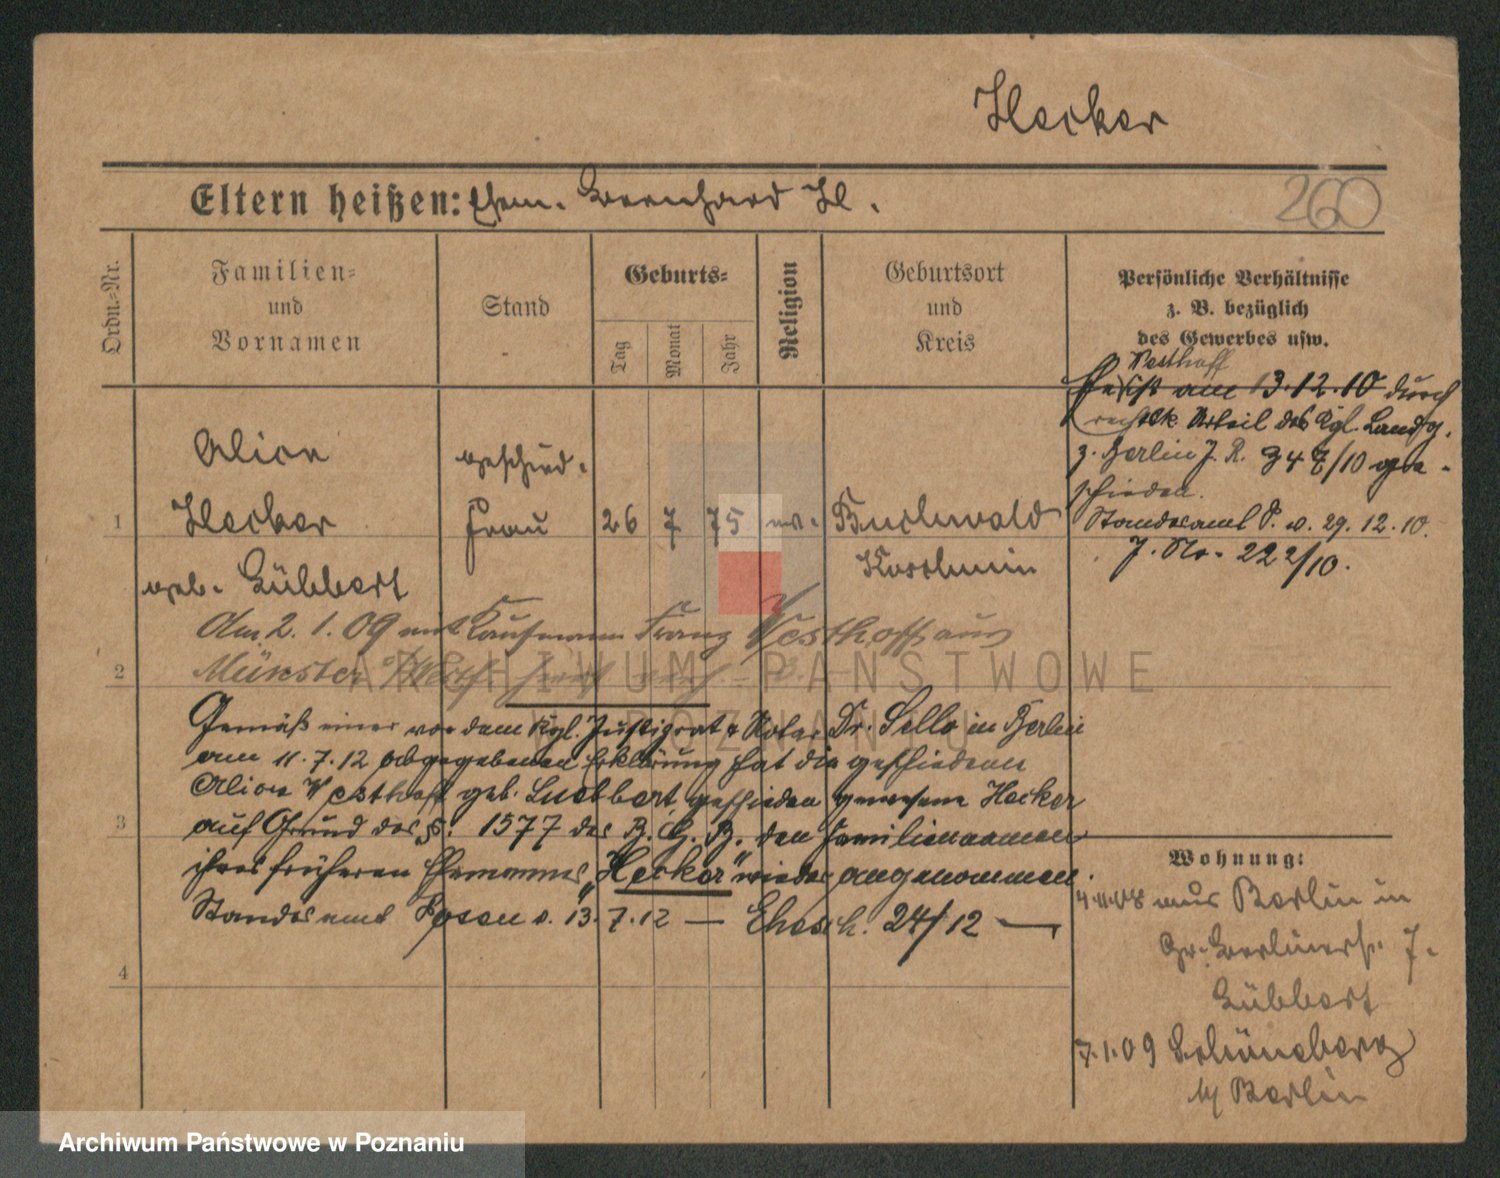 Hecker
Eltern heißen: Ehem. Bernhard H.
260
Ordn.=Nr.
Familien=
und
Vornamen
Stand
Geburts=
Tag
Monat
Jahr
Religion
Geburtsort
und
Kreis
Persönliche Verhältnisse
z. B. bezüglich
des Gewerbes usw.
Westhoff
ist am 13.12.10 durch
rechtsk. Urteil des Kgl. Landg.
z. Berlin J. R. 347/10 ge-
schieden.
Standesamt P. v. 29.12.10.
J. No. 222/10.
Alice
geschied.
1
Hecker
Frau
26
7
75
ev.
Buchwald
Koschmin
geb. Lübbert
Am 2.1.09 mit Kaufmann Franz Westhoff aus
2
Münster i/Westf
Gemäß einer vor dem Kgl. Justizrat u Notar Dr. Sello in Berlin
am 11.7.12 abgegebenen Erklärung hat die geschiedene
Alice Westhoff geb. Luebbert, geschieden gewesene Hecker
3
auf Grund des §. 1577 des B. G. B. den Familiennamen
ihres früheren Ehemannes „Hecker" wieder angenommen.
Standesamt Posen v. 13.7.12 — Ehesch. 24/12 —
4
Wohnung:
aus Berlin in
Gr. Berlinerstr. 7.
Lübbert
7.1.09 Schöneberg
b/ Berlin
ARCHIWUM PAŃSTWOWE
W POZNANIU
Archiwum Państwowe w Poznaniu